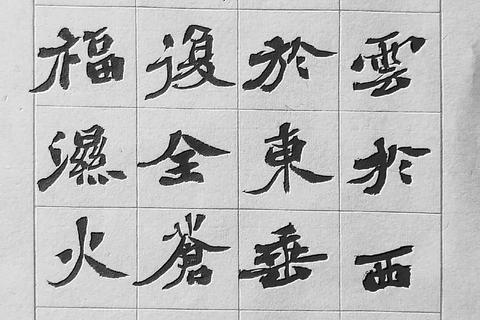 雲於西
於東垂
復全蒼
福濕火